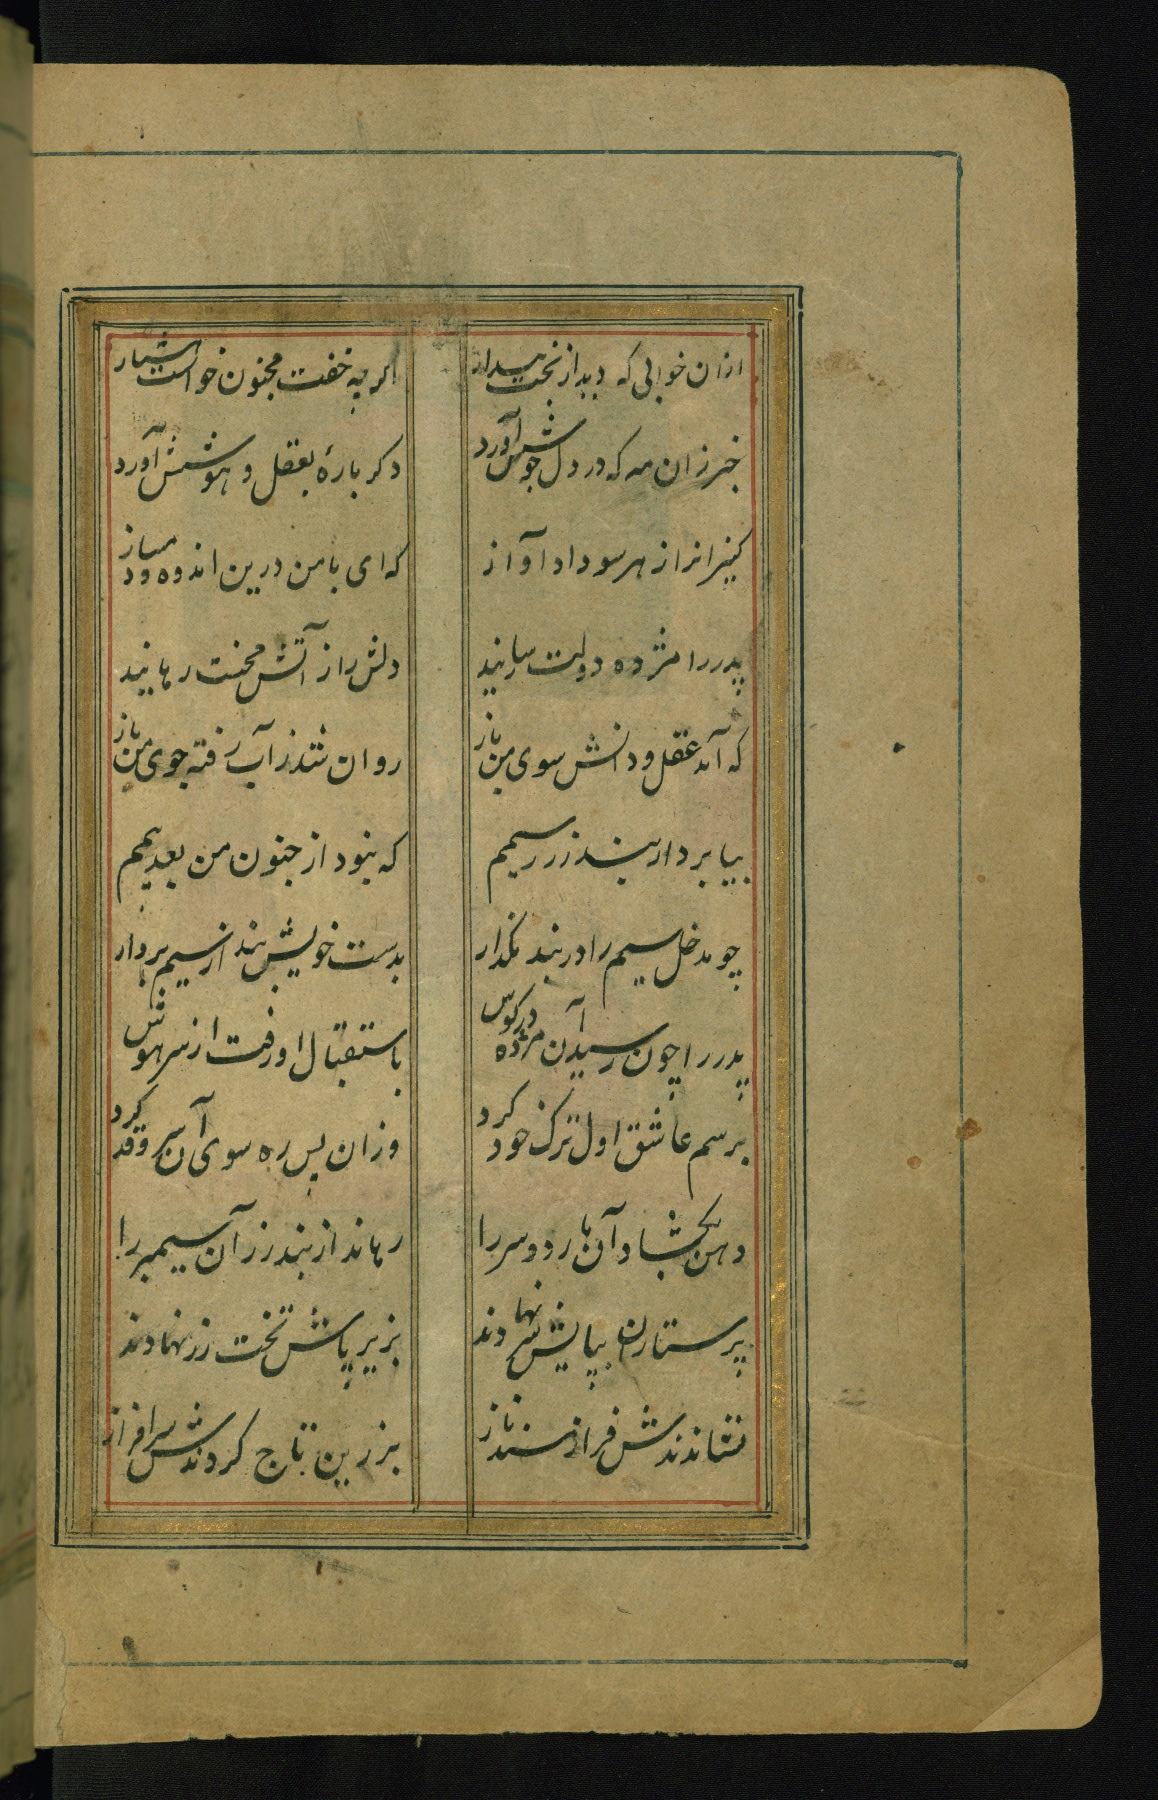 ازان خوابی که دید از بخت بیدار اکرچه خفت مجنون خواست هشیار
خبر زان مه که در دل جوشش آورد دکر بارهٔ بعقل و هوشش آورد
کنیزانرا ز هر سو داد آواز که ای با من درین اندوه دمساز
پدر را مژده دولت رسانید دلش را ز آتش محنت رهانید
که آمد عقل و دانش سوی من باز روان شد ز آب رفته جوی من باز
بیا بردار بند زر ز سیمم که نبود از جنون من بعد بیمم
چو مدخل سیم را در بند مکذار بدست خویش بند از سیم بردار
پدر را چون رسید آن مژده در کوش باستقبال او رفت از سر هوش
برسم عاشق اول ترک خود کرد وزان پس ره سوی آن سرو قد کرد
دهن بکشاد آن مار دو سر را رهاند از بند زر آن سیمبر را
پرستاران بپایش سر نهادند بزیر پاش تخت زر نهادند
نشاندندش فراز مسند ناز بزرین تاج کردندش سرافراز